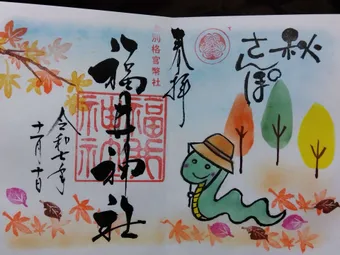 秋
さんぽ
奉拝
別格官幣社
福井神社
福井神社
令和七年
十一月一日